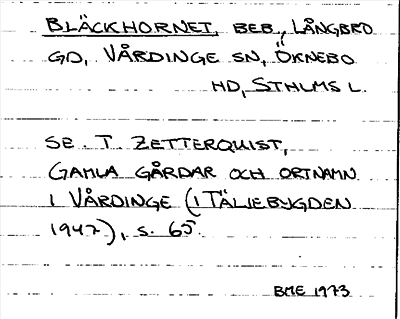 BLÄCKHORNET, BEB., LÅNGBRO
GD, VÅRDINGE SN, ÖKNEBO
HD, STHLMS L.
SE. T. ZETTERQUIST,
GAMLA GÅRDAR OCH ORTNAMN
I VÅRDINGE (I TÄLJEBYGDEN
1947), S. 65.
BME 1973